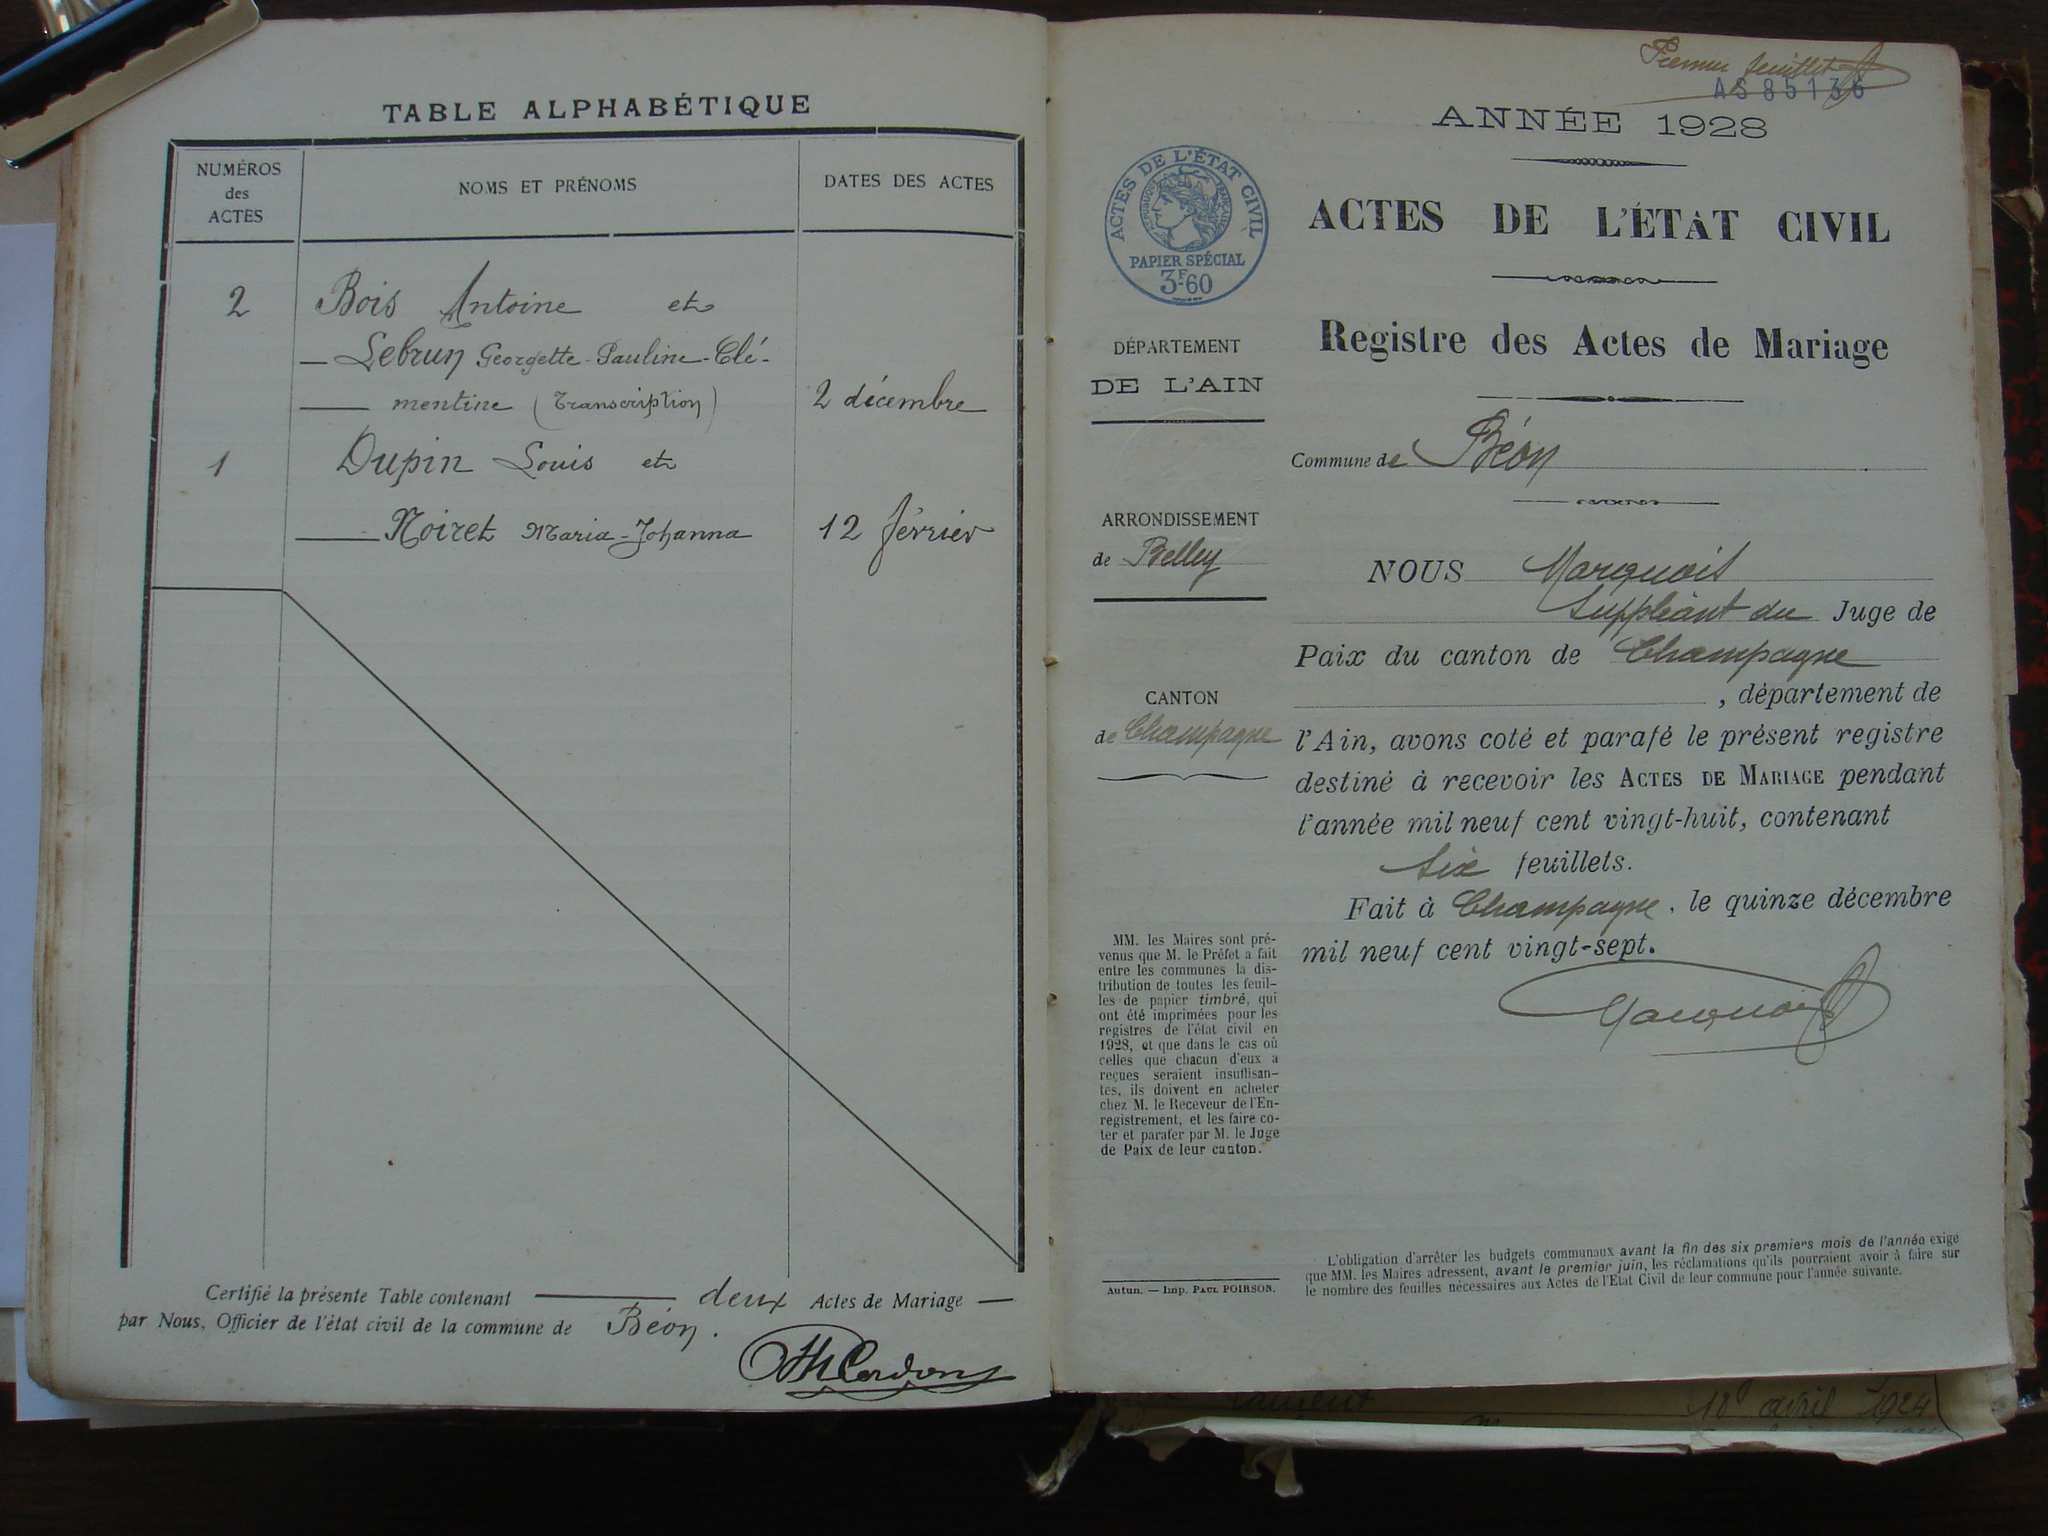 TABLE ALPHABÉTIQUE
NUMÉROS
des
ACTES
NOMS ET PRÉNOMS
DATES DES ACTES
2 Bois Antoine et
Lebrun Georgette-Pauline-Clé-
mentine (Transcription) 2 décembre
1 Dupin Louis et
Noiret Maria-Johanna 12 février
Certifié la présente Table contenant deux Actes de Mariage
par Nous, Officier de l'état civil de la commune de Béon.
Premier feuillet
AS 85136
ANNÉE 1928
ACTES DE L'ÉTAT CIVIL
PAPIER SPÉCIAL
3F.60
ACTES DE L'ÉTAT CIVIL
Registre des Actes de Mariage
DÉPARTEMENT
DE L'AIN
Commune de Béon
ARRONDISSEMENT
de Belley
CANTON
de Champagne
NOUS Marquois
Suppléant du Juge de
Paix du canton de Champagne
, département de
l'Ain, avons coté et parafé le présent registre
destiné à recevoir les ACTES DE MARIAGE pendant
l'année mil neuf cent vingt-huit, contenant
six feuillets.
Fait à Champagne, le quinze décembre
mil neuf cent vingt-sept.
Marquois
MM. les Maires sont pré-
venus que M. le Préfet a fait
entre les communes la dis-
tribution de toutes les feuil-
les de papier timbré, qui
ont été imprimées pour les
registres de l'état civil en
1928, et que dans le cas où
celles que chacun d'eux a
reçues seraient insuffisan-
tes, ils doivent en acheter
chez M. le Receveur de l'En-
registrement, et les faire co-
ter et parafer par M. le Juge
de Paix de leur canton.
Autun. — Imp. PAUL POIRSON.
L'obligation d'arrêter les budgets communaux avant la fin des six premiers mois de l'année exige
que MM. les Maires adressent, avant le premier juin, les réclamations qu'ils pourraient avoir à faire sur
le nombre des feuilles nécessaires aux Actes de l'Etat Civil de leur commune pour l'année suivante.
18 avril 1924